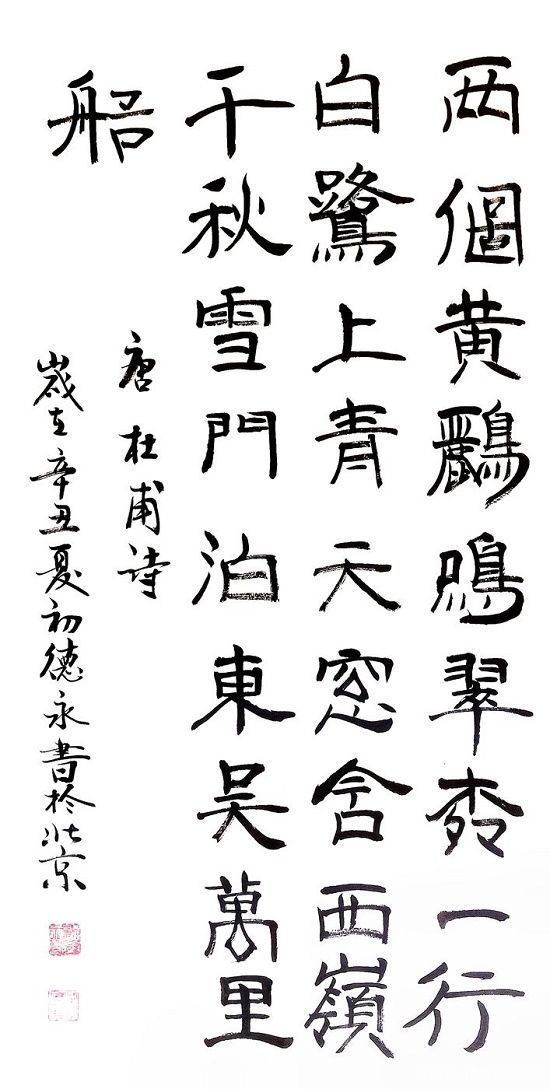 两個黄鸝鳴翠柳一行
白鷺上青天窓含西嶺
千秋雪門泊東吴萬里
船
唐杜甫詩
歲在辛丑夏初德永書於北京